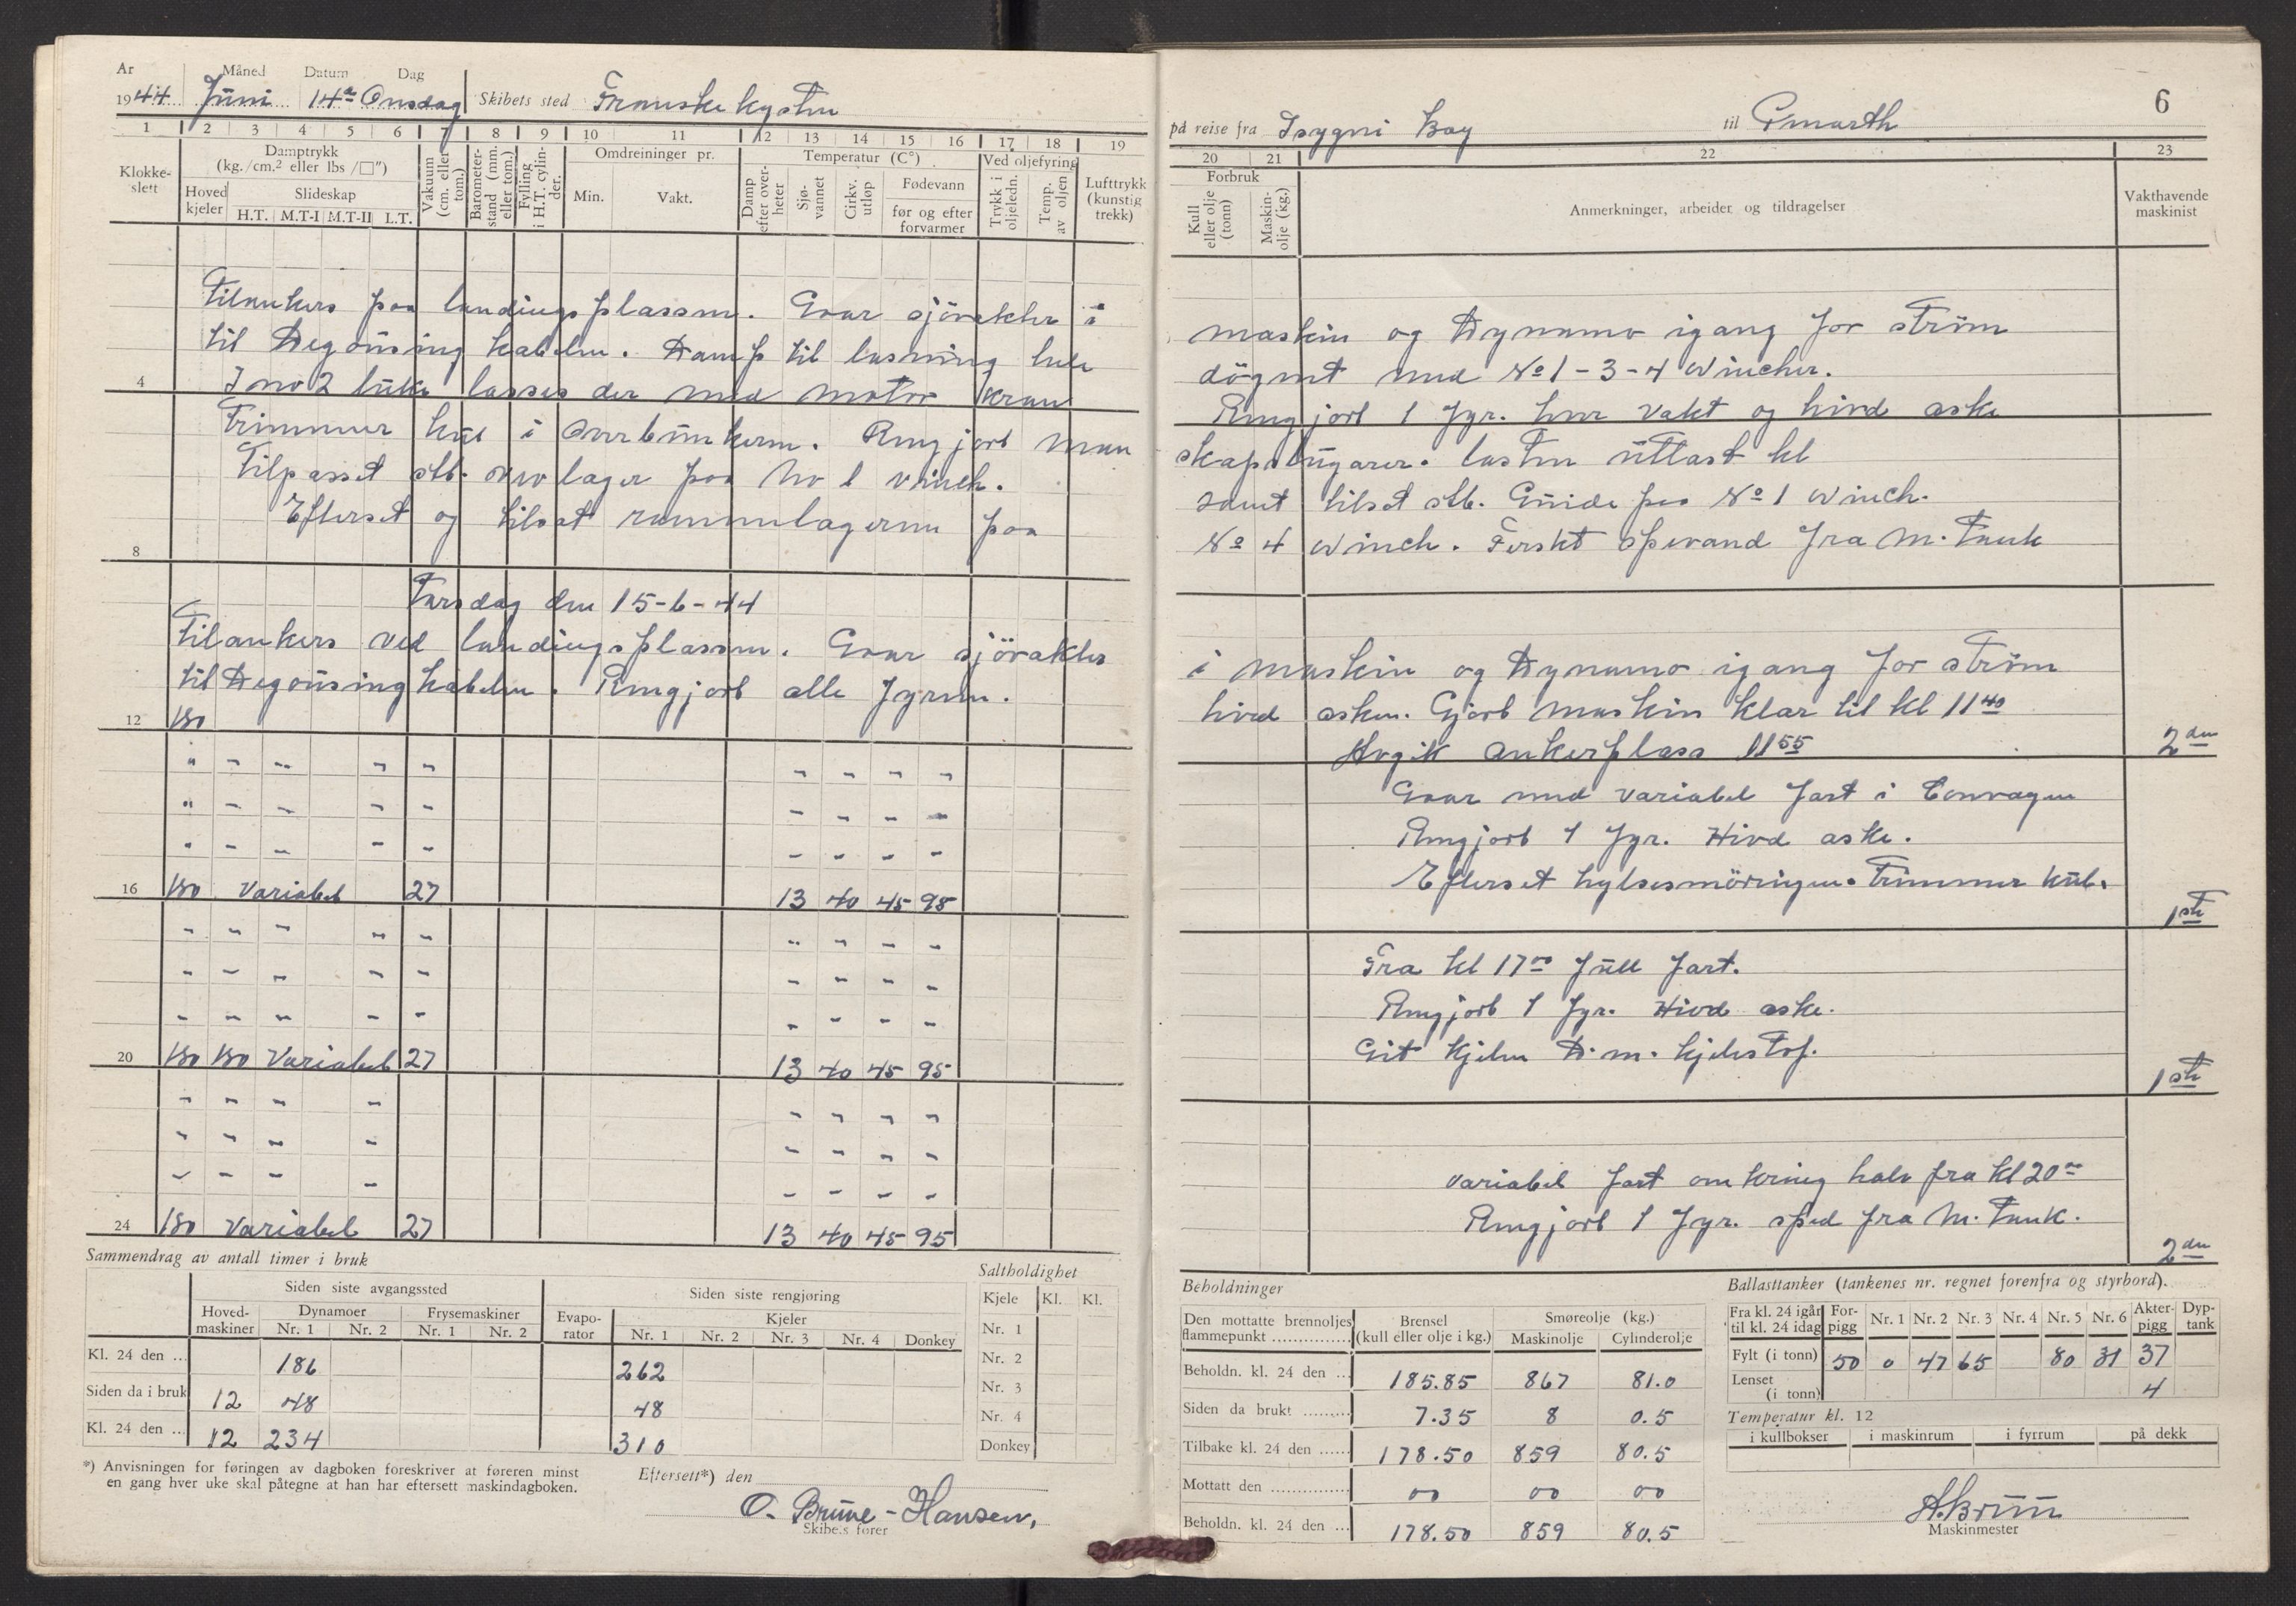 År Måned Datum Dag
1944 Juni 14de Onsdag Skibets sted Franske kysten
1 2 3 4 5 6 7 8 9 10 11 12 13 14 15 16 17 18 19
Klokkeslett
Damptrykk (kg./cm.² eller lbs/□")
Hovedkjeler
Slideskap
H.T. M.T-I M.T-II L.T.
Vakuum (cm. eller tom.)
Barometerstand (mm. eller tom.)
Fylling i H.T. cylinder.
Omdreininger pr.
Min. Vakt.
Temperatur (C°)
Damp efter overheter
Sjøvannet
Cirkv. utløp
Fødevann
før og efter forvarmer
Ved oljefyring
Trykk i oljeledn.
Temp. av oljen
Lufttrykk (kunstig trekk)
Tilankers paa landingsplassen. Gaar sjövakter i
til Degousing kabelen. Damp til losning hele
4 I no 2 luke losses der med motor kran
Trimmer kul i Overbunkern. Rengjort
Tilpasset stb. lager paa No 1 vinch.
Efterset og tilsat rammelagerne paa
8
Torsdag den 15-6-44
Tilankers ved landingsplassen. Gaar sjövakter
til Degousing kabelen. Rengjort alle fyrene.
12 180
" - - - - - - - -
" - - - - - - - -
" - - - - - - - -
16 180 Variabel 27 13 40 45 95
- - - - - - - - -
- - - - - - - - -
- - - - - - - - -
20 180 180 Variabel 27 13 40 45 95
- - - - - - - -
- - - - - - - -
- - - - - - - -
24 180 Variabel 27 13 40 45 95
Sammendrag av antall timer i bruk
Siden siste avgangssted
Siden siste rengjøring
Hovedmaskiner
Dynamoer
Nr. 1 Nr. 2
Frysemaskiner
Nr. 1 Nr. 2
Evaporator
Kjeler
Nr. 1 Nr. 2 Nr. 3 Nr. 4 Donkey
Kl. 24 den ... 186 262
Siden da i bruk 12 48 48
Kl. 24 den ... 12 234 310
Saltholdighet
Kjele Kl. Kl.
Nr. 1
Nr. 2
Nr. 3
Nr. 4
Donkey
*) Anvisningen for føringen av dagboken foreskriver at føreren minst
en gang hver uke skal påtegne at han har eftersett maskindagboken.
Eftersett*) den
O. Brune-Hansen,
Skibets fører
6
på reise fra Isygni Bay til Penarth
20 21 22 23
Forbruk
Kull eller olje (tonn)
Maskinolje (kg.)
Anmerkninger, arbeider og tildragelser
Vakthavende maskinist
maskin og Dynamo igang for ström
dögnet med No 1-3-4 Wincher.
Rengjort 1 fyr. hver vakt og hivd aske
lasten utlast kl
samt tilset stb. Guide paa No 1 Winch.
No 4 Winch. Ferskt spevand fra M. Tank
i maskin og Dynamo igang for ström
hived asken. Gjort maskin klar til kl 11 40
Avgik ankerplass 11 55 2den
Gaar med variabel fart i Convagen
Rengjort 1 fyr. Hivd aske.
Efterset hylsesmöringen. Trimmer kul.
1ste
Fra kl 17 00 full fart.
Rengjort 1 fyr. Hivd aske.
Git kjelen D.m. kjelestof.
1ste
variabel fart omkring halv fra kl 20 00
Rengjort 1 fyr. sped fra M. Tank.
2den
Beholdninger
Den mottatte brennoljes flammepunkt ...............
Brensel (kull eller olje i kg.)
Smøreolje (kg.)
Maskinolje Cylinderolje
Beholdn. kl. 24 den ... 185.85 867 81.0
Siden da brukt ......... 7.35 8 0.5
Tilbake kl. 24 den ...... 178.50 859 80.5
Mottatt den ............... 00 00 00
Beholdn. kl. 24 den ... 178.50 859 80.5
Ballasttanker (tankenes nr. regnet forenfra og styrbord).
Fra kl. 24 igår til kl. 24 idag Forpigg Nr. 1 Nr. 2 Nr. 3 Nr. 4 Nr. 5 Nr. 6 Akterpigg Dyptank
Fylt (i tonn) 50 0 47 65 80 31 37
Lenset (i tonn) 4
Temperatur kl. 12
i kullbokser i maskinrum i fyrrum på dekk
A. Bruun
Maskinmester